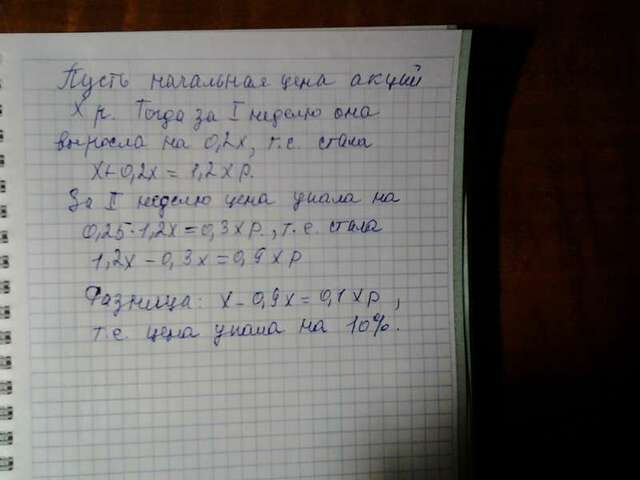 Пусть начальная цена акций
х р. Тогда за I неделю она
выросла на 0,2х, т.е. стала
х+0,2х = 1,2х р.
За II неделю цена упала на
0,25·1,2х=0,3х р., т.е. стала
1,2х – 0,3х = 0,9х р
Разница: х – 0,9х = 0,1х р,
т.е. цена упала на 10%.